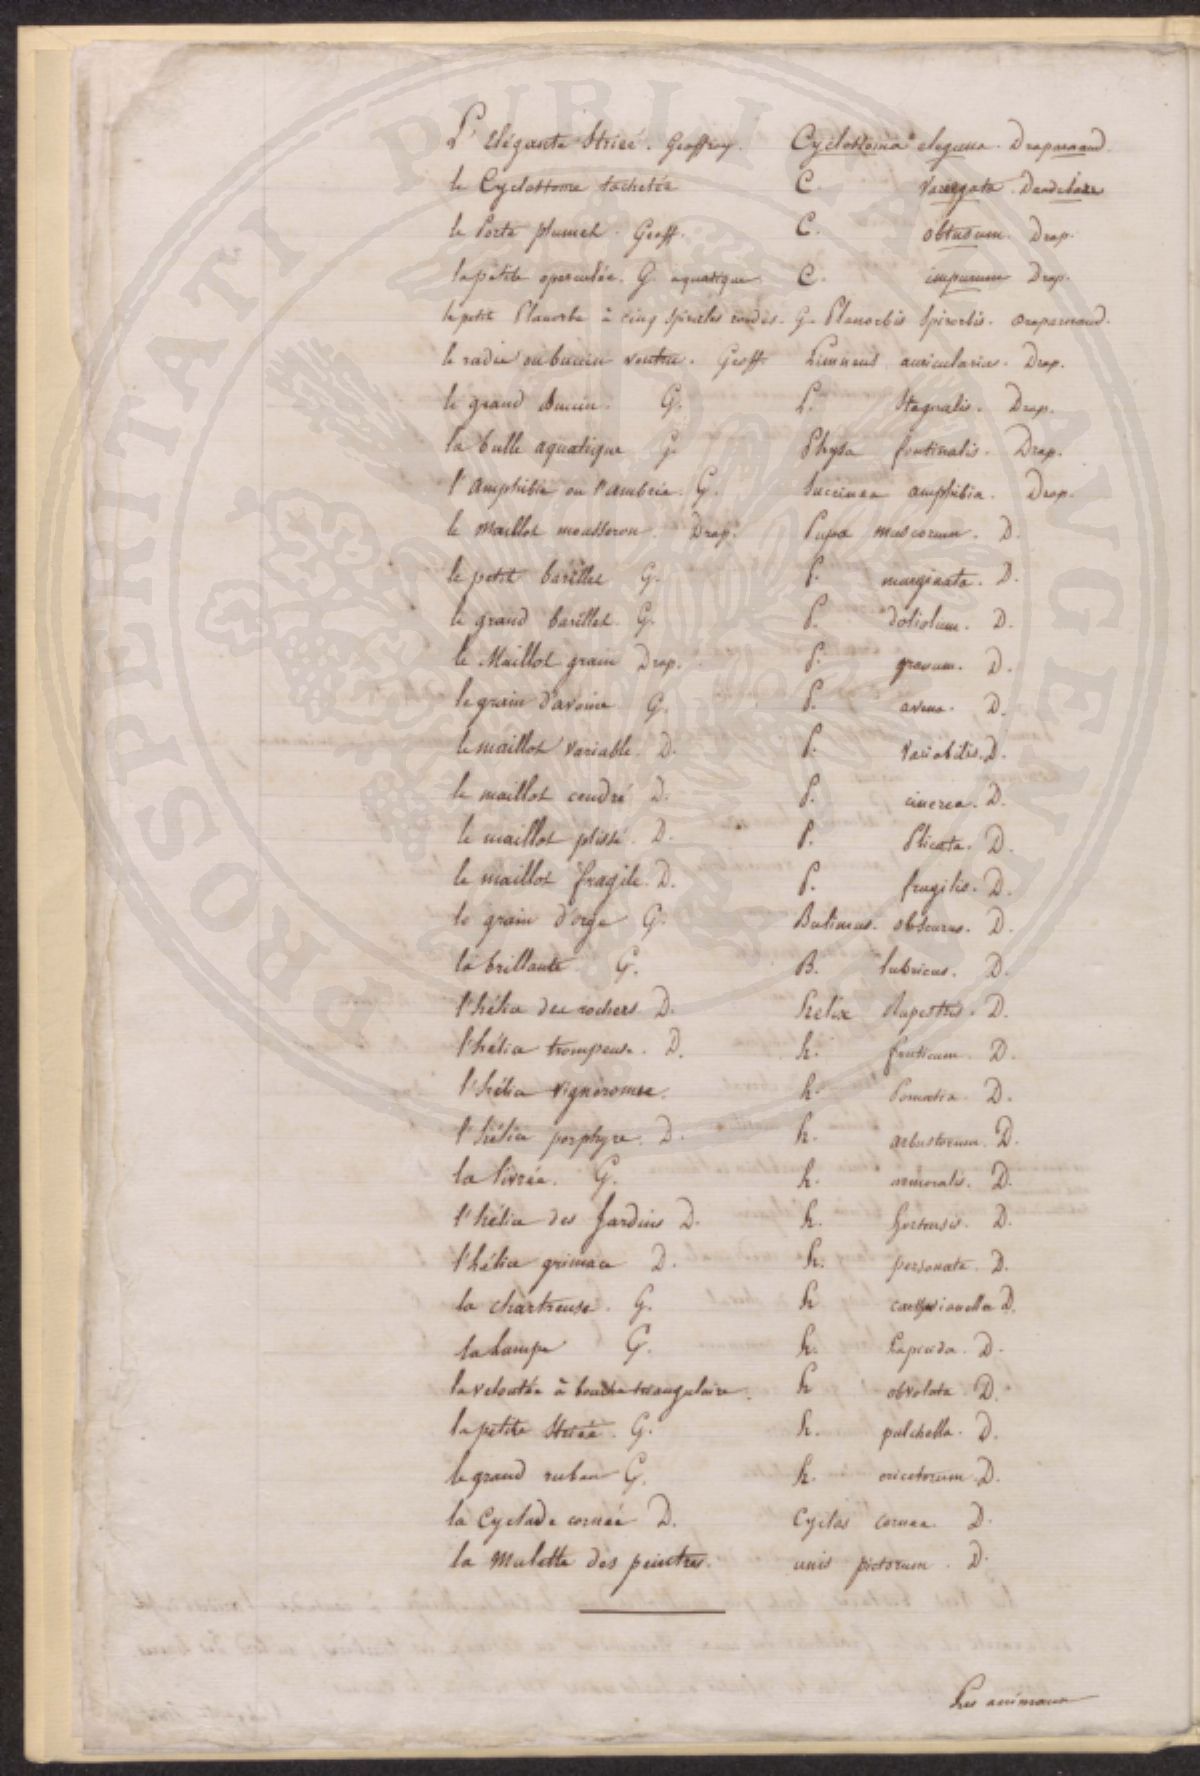 L'élégante striée. Geoffroy. Cyclostoma elegans. Draparnaud.
le Cyclostome tachetée C. Variegata
le Porte plumet. Geoff. C. obtusum. Drap.
la petite operculée. G. aquatique C. impurum Drap.
le petit Planorbe à cinq spirales rondes. G. Planorbis Spirorbis. Draparnaud.
le radis ou buccin ventru. Geoff. Limneus auricularius. Drap.
le grand buccin. G. L. Stagnalis. Drap.
la bulle aquatique G. Physa fontinalis. Drap.
l'amphibie ou l'ambrée. G. Succinea amphibia. Drap.
le Maillot mousseron. Drap. Pupa muscorum. D.
le petit barillet G. P. marginata. D.
le grand barillet. G. P. doliolum. D.
le Maillot grain Drap. P. granum. D.
le grain d'avoine G. P. avena. D.
le maillot variable. D. P. variabilis. D.
le maillot cendré D. P. cinerea. D.
le maillot plissé. D. P. Plicata. D.
le maillot fragile. D. P. fragilis. D.
le grain d'orge G. Bulimus. obscurus. D.
la brillante. G. B. lubricus. D.
l'hélice des rochers D. helix Rupestris. D.
l'hélice trompeuse. D. h. fruticum. D.
l'hélice vigneronne. h. Pomatia. D.
l'hélice porphyre. D. h. arbustorum. D.
la livrée. G. h. nemoralis. D.
l'hélice des Jardins D. h. hortensis. D.
l'hélice grimace D. h. personata. D.
la chartreuse. G. h carthusianella D.
la lampe G. h. lapicida. D.
la veloutée à bouche triangulaire. h obvoluta. D.
la petite striée. G. h. pulchella. D.
le grand ruban G. h. ericetorum. D.
la Cyclade cornée D. Cyclas cornea. D.
la Mulette des peintres. unio pictorum. D.
Les animaux
PROSPERITATI PUBLICAE AUGENDAE